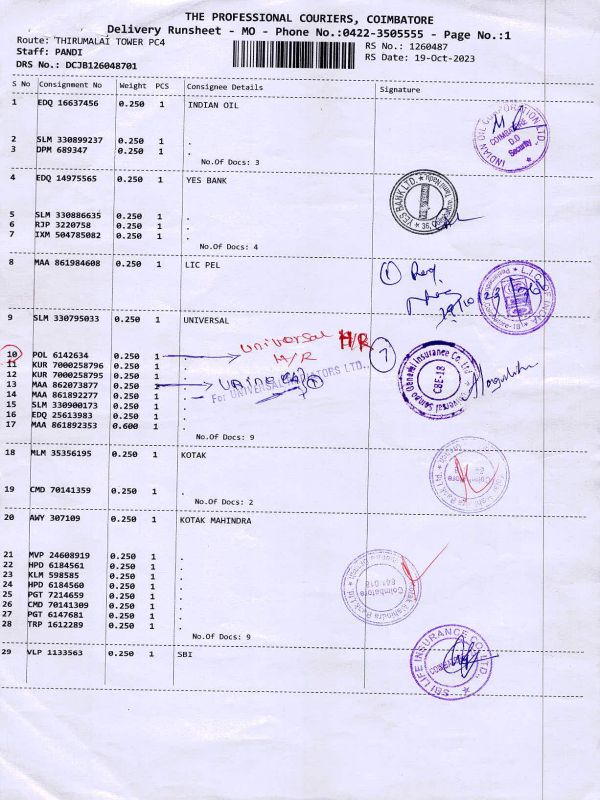 THE PROFESSIONAL COURIERS, COIMBATORE
Delivery Runsheet - MO - Phone No.:0422-3505555 - Page No.:1
Route: THIRUMALAI TOWER PC4
RS No.: 1260487
Staff: PANDI
RS Date: 19-Oct-2023
DRS No.: DCJB126048701
S No Consignment No Weight PCS Consignee Details Signature
1 EDQ 16637456 0.250 1 INDIAN OIL
INDIAN OIL CORPORATION LTD. COIMBATORE D.O Security
2 SLM 330899237 0.250 1 .
3 DPM 689347 0.250 1 .
No.Of Docs: 3
4 EDQ 14975565 0.250 1 YES BANK
YES BANK LTD.
5 SLM 330886635 0.250 1 .
6 RJP 3220758 0.250 1 .
7 IXM 504785082 0.250 1 .
No.Of Docs: 4
8 MAA 861984608 0.250 1 LIC PEL
L I C OF INDIA
9 SLM 330795033 0.250 1 UNIVERSAL
universal H/R
10 POL 6142634 0.250 1 H/R
11 KUR 7000258796 0.250 1 .
12 KUR 7000258795 0.250 1 .
13 MAA 862073877 0.250 1 .
14 MAA 861892277 0.250 1 .
15 SLM 330900173 0.250 1 .
16 EDQ 25613983 0.250 1 .
17 MAA 861892353 0.600 1 .
7
Universal Sompo General Insurance Co. Ltd. CBE-18
No.Of Docs: 9
18 MLM 35356195 0.250 1 KOTAK
19 CMD 70141359 0.250 1 .
No.Of Docs: 2
20 AWY 307109 0.250 1 KOTAK MAHINDRA
21 MVP 24608919 0.250 1 .
22 HPD 6184561 0.250 1 .
23 KLM 598585 0.250 1 .
24 HPD 6184560 0.250 1 .
25 PGT 7214659 0.250 1 .
26 CMD 70141309 0.250 1 .
27 PGT 6147681 0.250 1 .
28 TRP 1612289 0.250 1 .
Coimbatore 641 018
No.Of Docs: 9
29 VLP 1133563 0.250 1 SBI
SBI LIFE INSURANCE CO. LTD.,